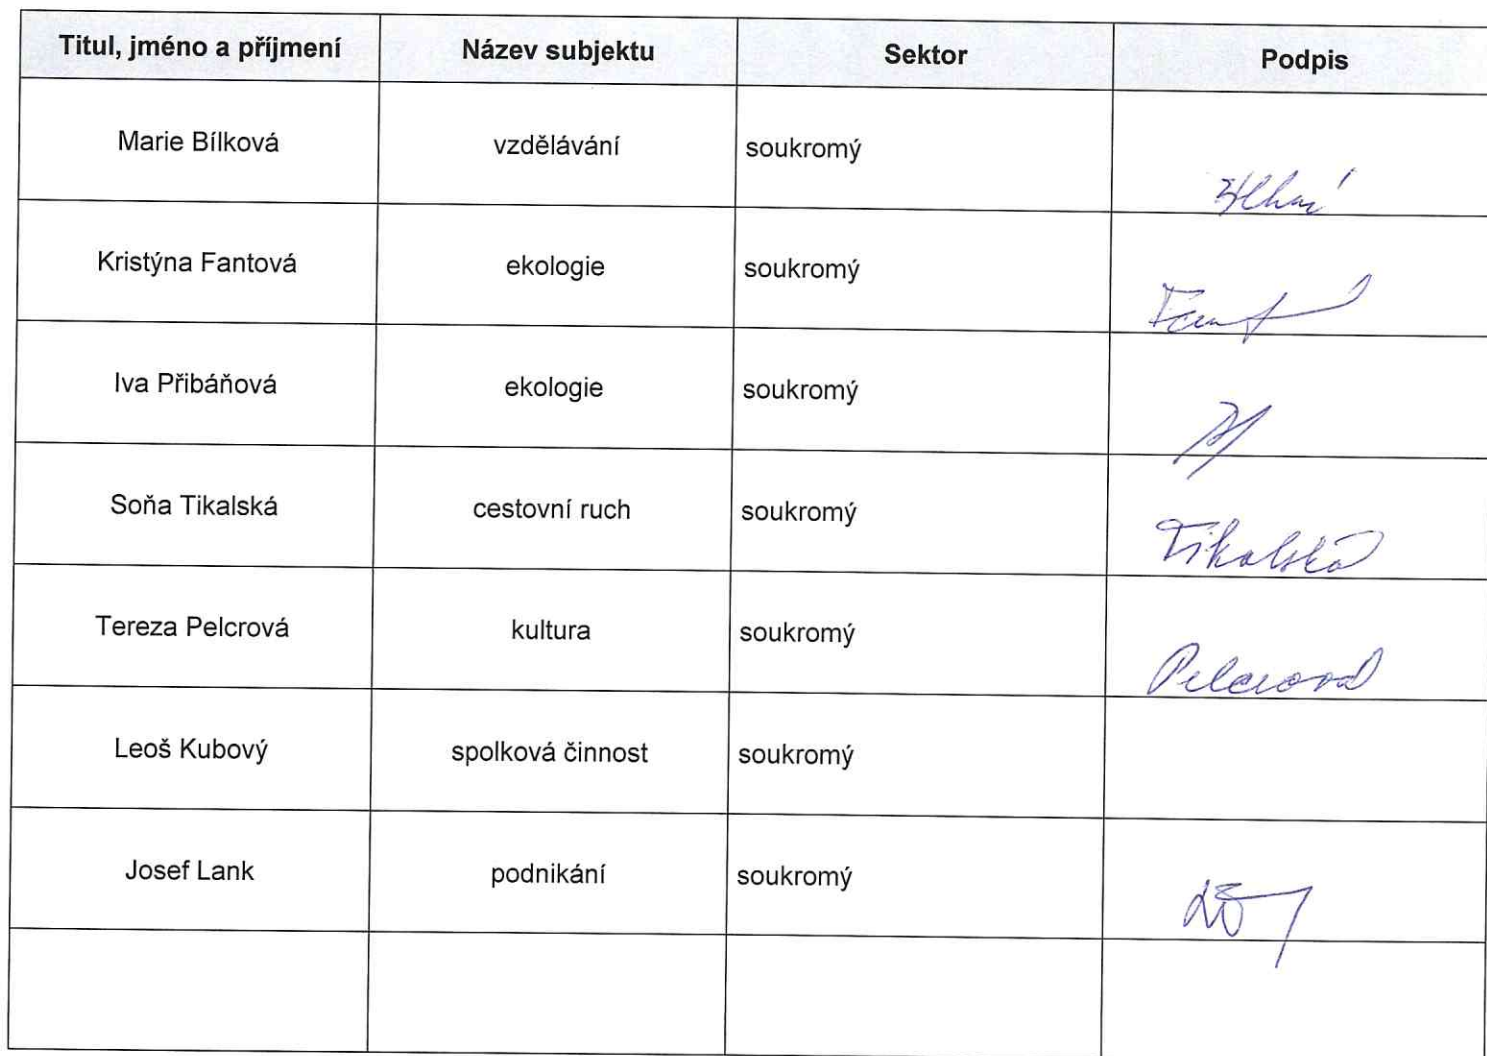 Titul, jméno a příjmení Název subjektu Sektor Podpis
Marie Bílková vzdělávání soukromý
Kristýna Fantová ekologie soukromý
Iva Přibáňová ekologie soukromý
Soňa Tikalská cestovní ruch soukromý Tikalská
Tereza Pelcrová kultura soukromý Pelcrová
Leoš Kubový spolková činnost soukromý
Josef Lank podnikání soukromý